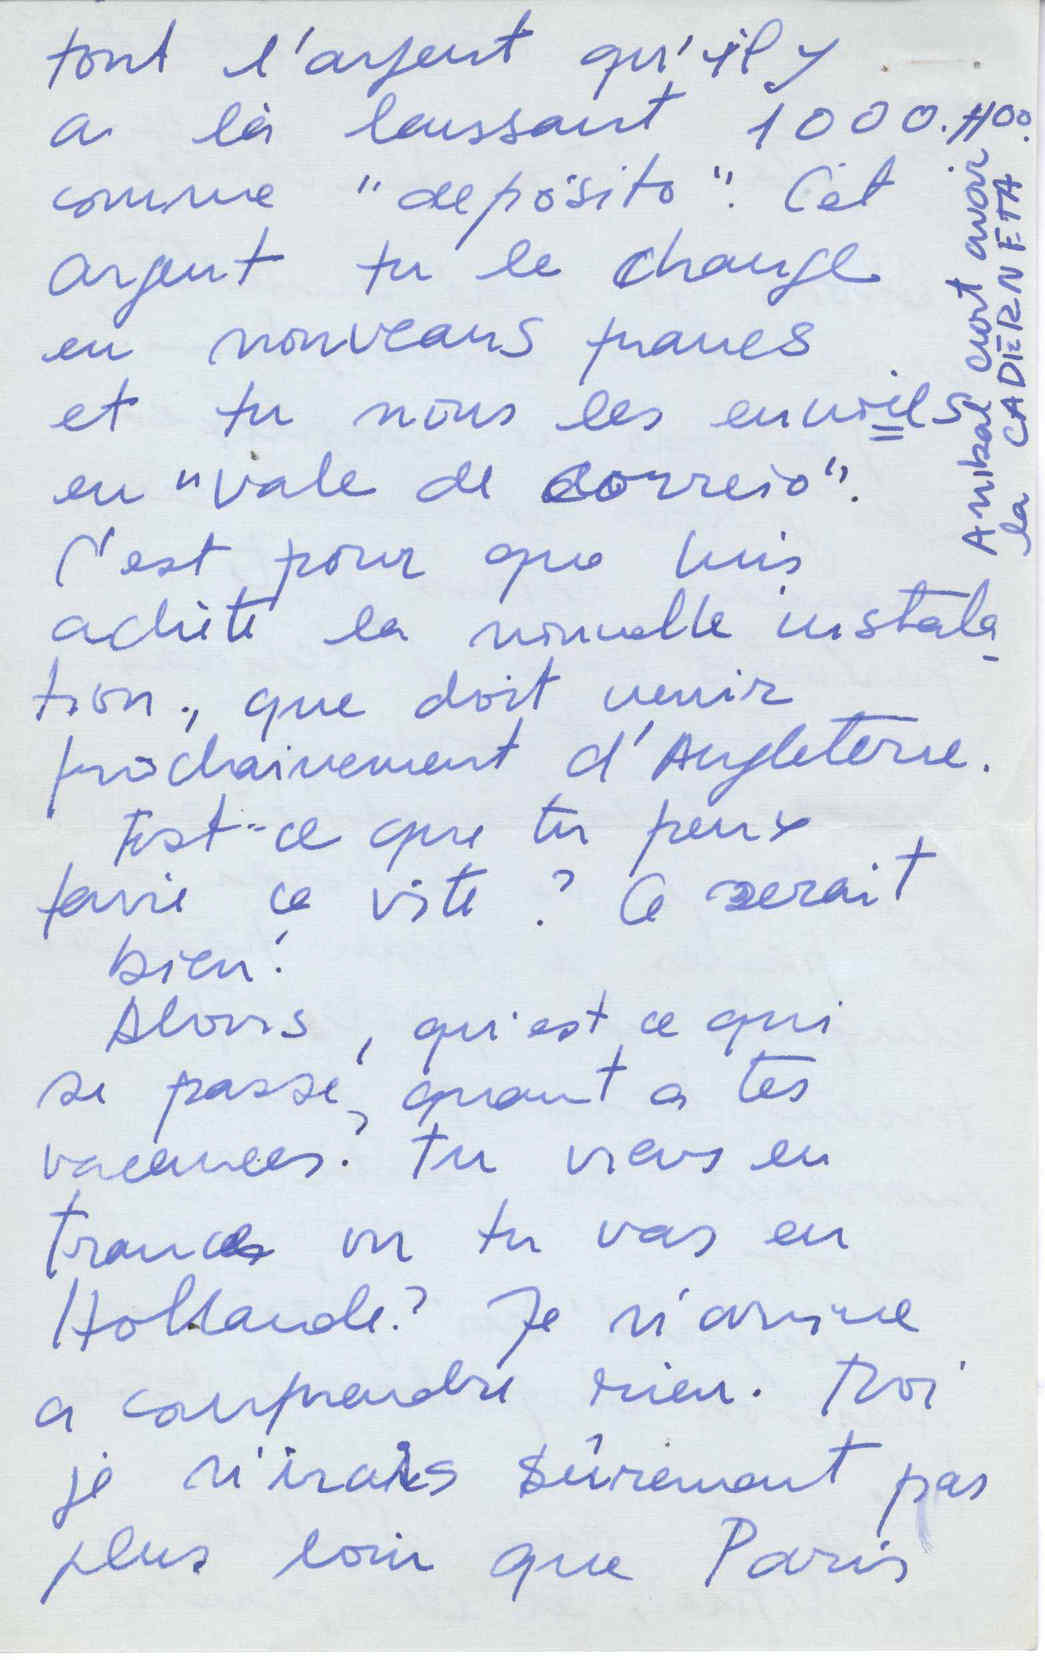 tout l'argent qu'il y
a là laissant 1000.$00
comme "depósito". Cet
argent tu le change
en nouveaus francs
et tu nous les envoies
en "vale de correio".
C'est pour que Luis
achète la nouvelle instala-
tion, que doit venir
prochainement d'Angleterre.
Est-ce que tu peux
faire ça vite? Ça serait
bien!
Alors, qu'est ce qui
se passe, quant a tes
vacances? Tu viens en
France ou tu vas en
Hollande? Je n'arrive
a comprendre rien. Moi
je n'irais sûrement pas
plus loin que Paris
Anibal croit avoir
la CADERNETA.